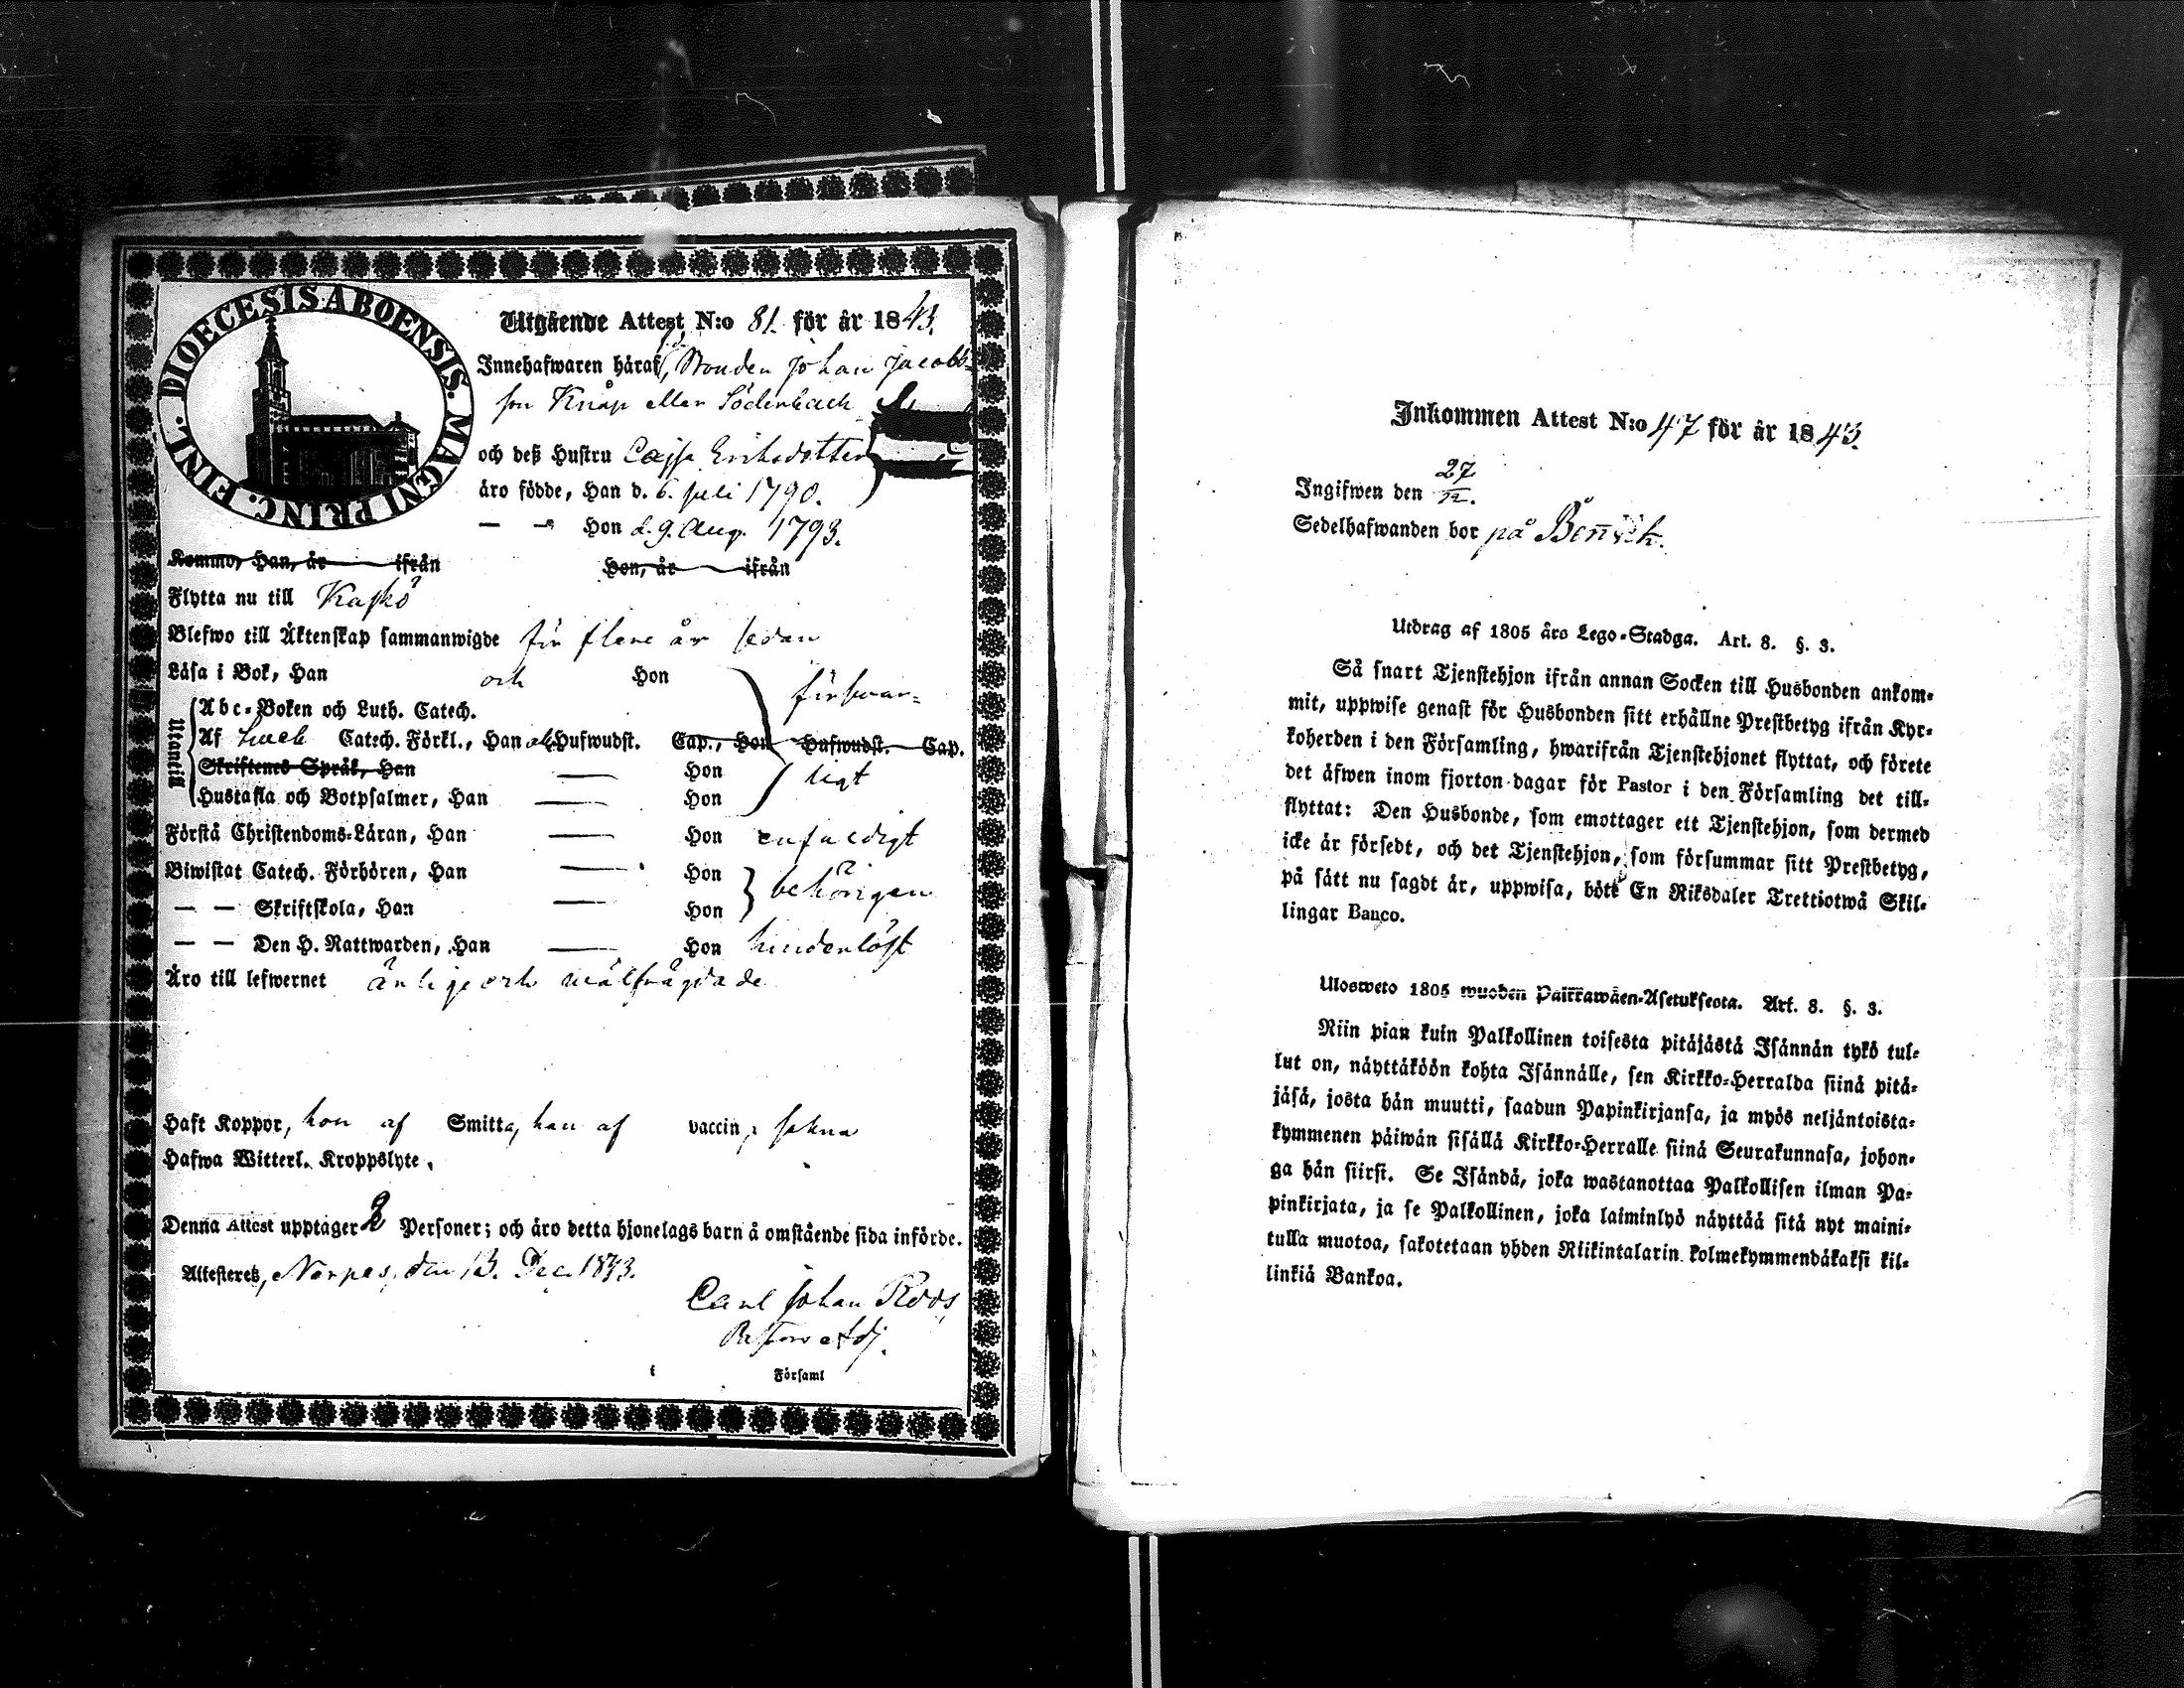 DIOECESIS ABOENSIS. MAGNI PRINC. FINL.
Utgående Attest N:o 81. för år 1843.
Innehafwaren häraf, Bonden Johan Jacobs-
son Knåp eller Söderback
och deß Hustru Cajsa Eriksdotter
äro födde, Han d. 6. juli 1790.
— — Hon d. 9. Aug. 1793.
Kommo, Han, år ifrån Hon, år ifrån
Flytta nu till Kaskö
Blefwo till Äktenskap sammanwigde för flere år sedan
Läsa i Bok, Han och Hon
förswar-
Utantill
Abc-Boken och Luth. Catech.
Af Catech. Förkl., Han Hufwudst. Cap., Hon Hufwudst. Cap.
Skriftenes Språk, Han — Hon ligt
Hustafla och Botpsalmer, Han — Hon
Förstå Christendoms-Läran, Han — Hon enfaldigt
Biwistat Catech. Förhören, Han — Hon
behörigen
— — Skriftskola, Han — Hon
— — Den H. Nattwarden, Han — Hon hinderlöst
Äro till lefwernet ärlige och wälfrägdade
Haft Koppor, hon af Smitta, han af vaccin, sakna
Hafwa Witterl. Kroppslyte.
Denna Attest upptager 2 Personer; och äro detta hjonelags barn å omstående sida införde.
Attesteres, Nerpes, den 13. Dec. 1843.
Carl Johan Roos
Pastors Adj.
Församl
Inkommen Attest N:o 47 för år 1843.
Ingifwen den 27/12.
Sedelhafwanden bor på
Utdrag af 1805 års Lego-Stadga. Art. 8. §. 3.
Så snart Tjenstehjon ifrån annan Socken till Husbonden ankom-
mit, uppwise genast för Husbonden sitt erhållne Prestbetyg ifrån Kyr-
koherden i den Församling, hwarifrån Tjenstehjonet flyttat, och förete
det äfwen inom fjorton dagar för Pastor i den Församling det till-
flyttat: Den Husbonde, som emottager ett Tjenstehjon, som dermed
icke är försedt, och det Tjenstehjon, som försummar sitt Prestbetyg,
på sätt nu sagdt är, uppwisa, böte En Riksdaler Trettiotwå Skil-
lingar Banco.
Ulosweto 1805 wuoden Palkkawäen-Asetuksesta. Art. 8. §. 3.
Niin pian kuin Palkollinen toisesta pitäjästä Isännän tykö tul-
lut on, näyttäköön kohta Isännälle, sen Kirkko-Herralda siinä pitä-
jäsä, josta hän muutti, saadun Papinkirjansa, ja myös neljäntoista-
kymmenen päiwän sisällä Kirkko-Herralle siinä Seurakunnasa, johon-
ga hän siirsi. Se Isändä, joka wastanottaa Palkollisen ilman Pa-
pinkirjata, ja se Palkollinen, joka laiminlyö näyttää sitä nyt maini-
tulla muotoa, sakotetaan yhden Riikintalarin kolmekymmendäkaksi kil-
linkiä Bankoa.